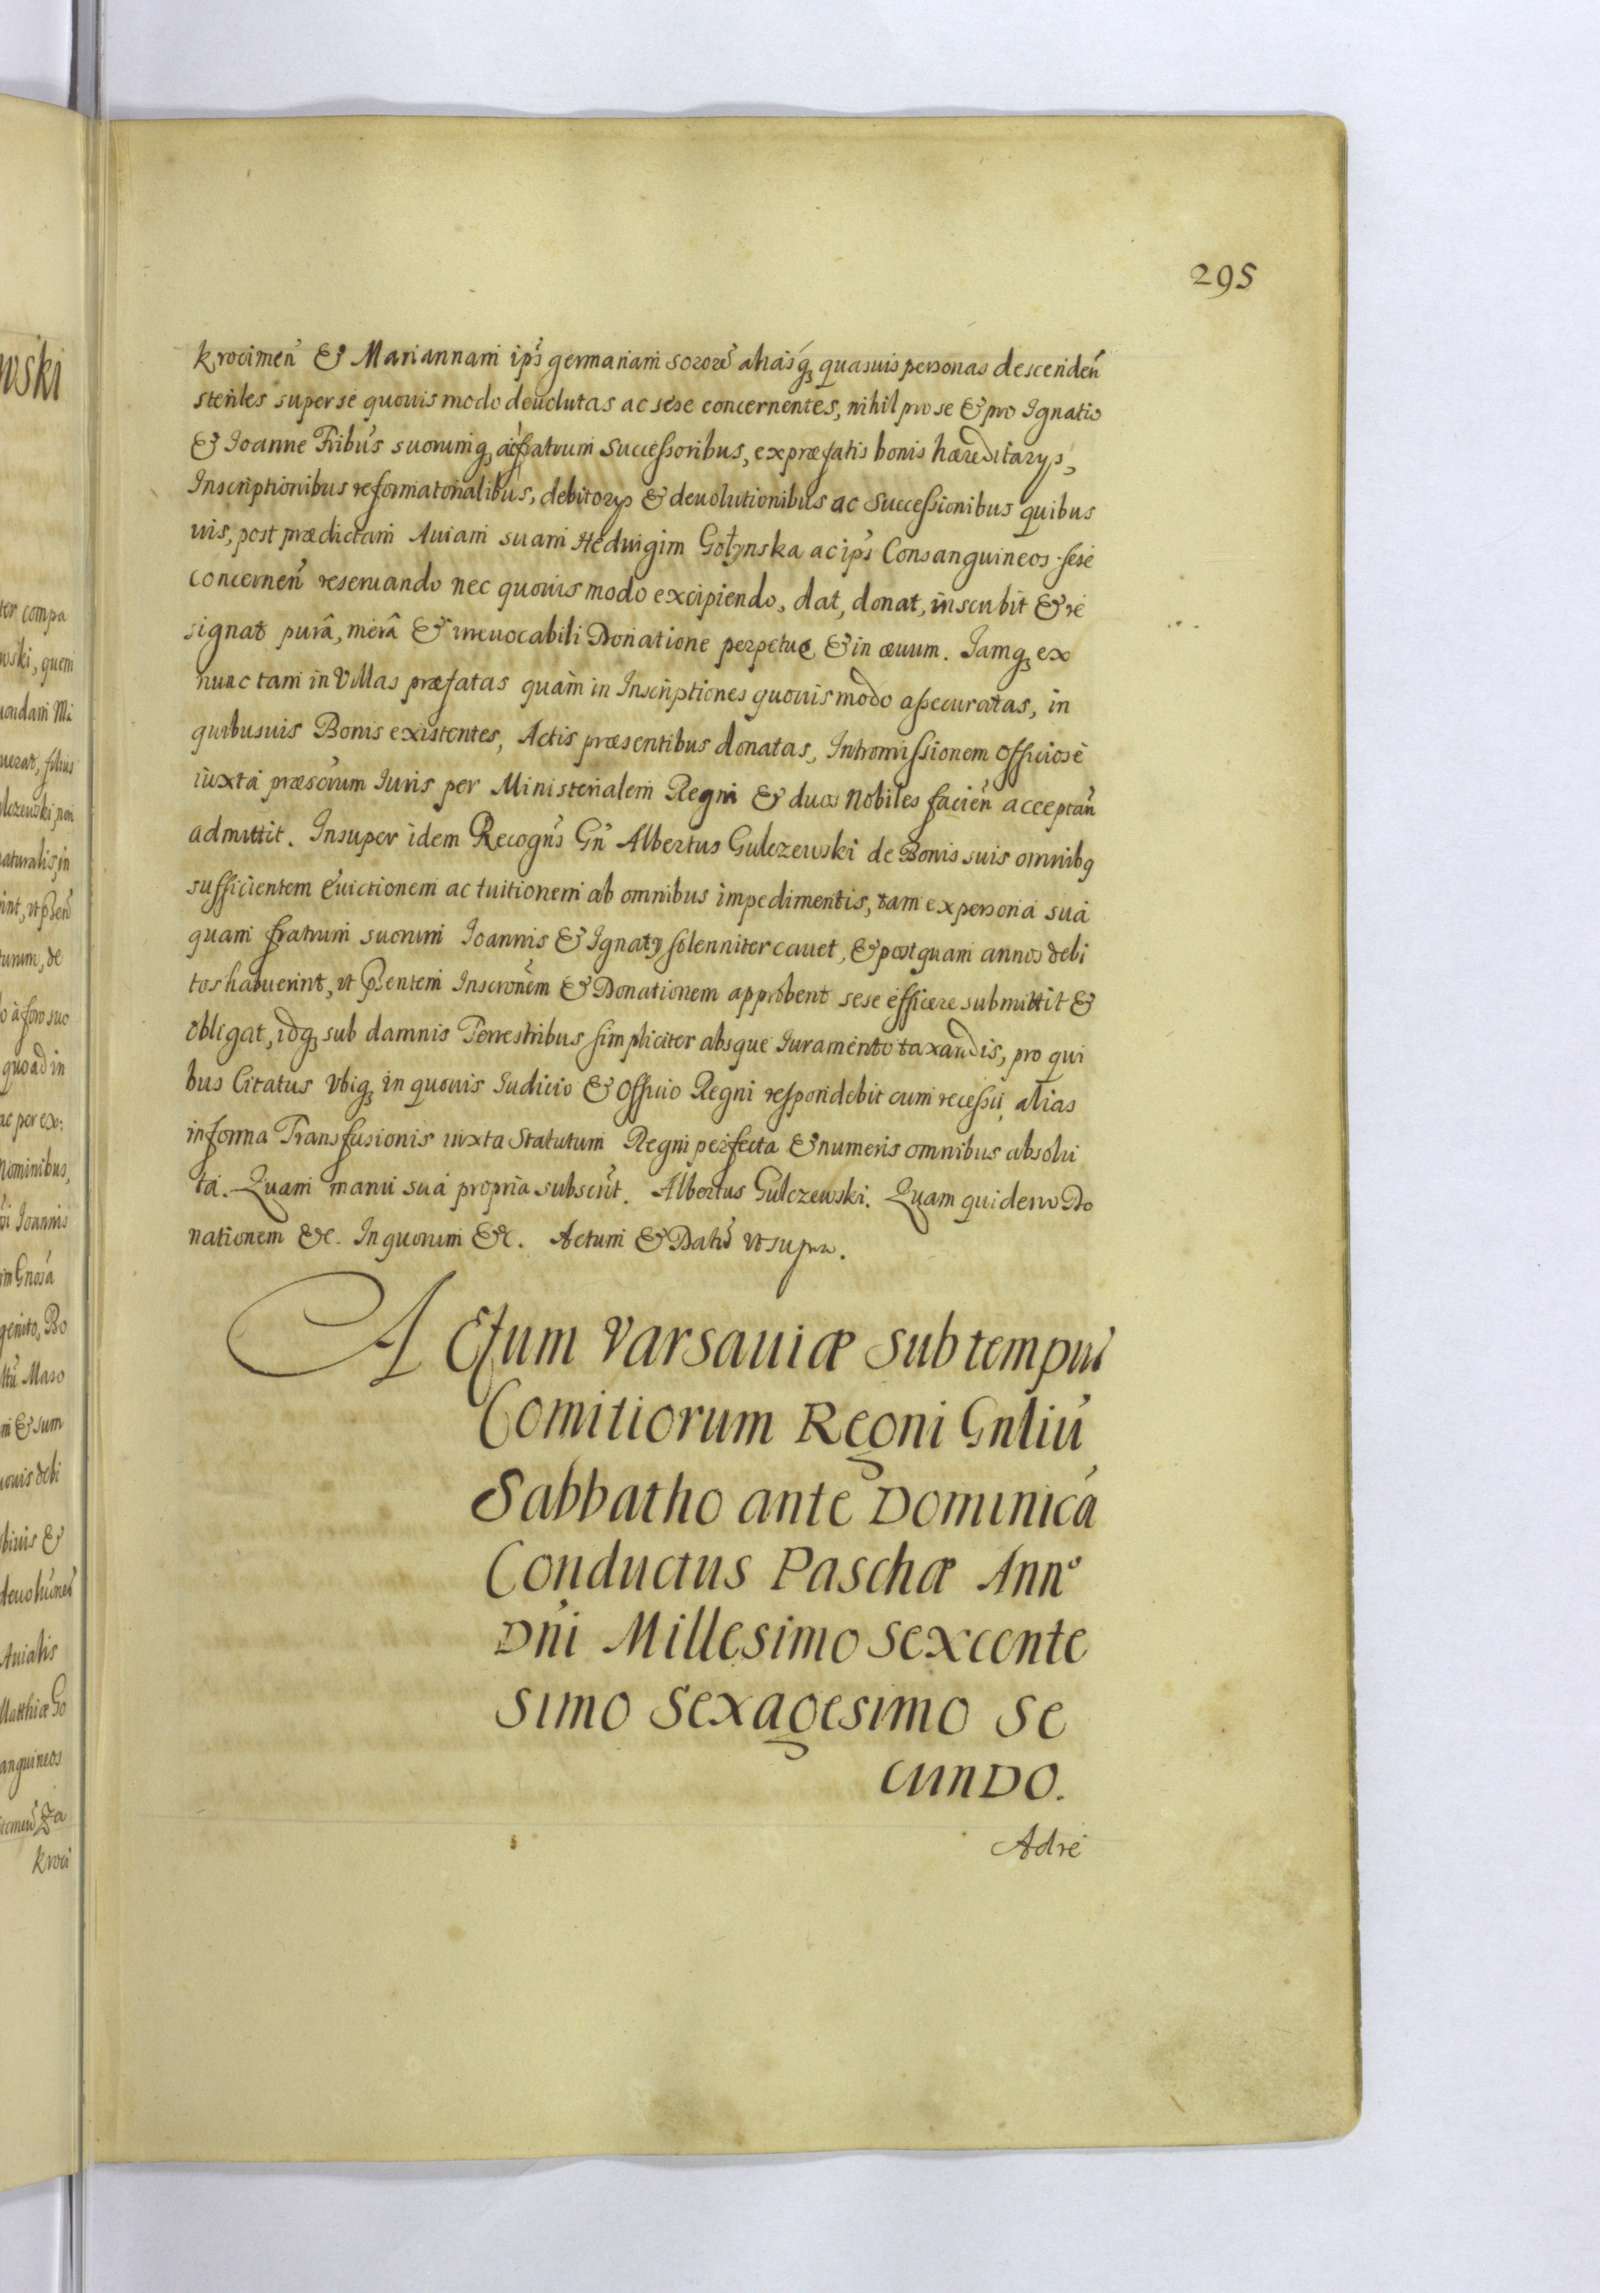 295
krocimeñ & Mariannam ips̃ germanam sororẽ aliasq; quasuis personas descendeñ
steriles super se quouis modo deuolutas ac sese concernentes, nihil pro se & pro Ignatio
& Ioanne Fribus suorumq; acfratrum Successoribus, ex præfatis bonis hæreditarys,
Inscriptionibus reformatorialibus, debitorys & deuolutionibus ac Successionibus quibus
uis, post prædictam Auiam suam Hedwigim Gołynska ac ips̃ Consanguineos sese
concerneñ reseruando nec quouis modo excipiendo, dat, donat, inscribit & re
signat purâ, merâ & irreuocabili Donatione perpetue & in æuum. Iamq; ex
nunc tam in Villas præfatas quàm in Inscriptiones quouis modo assecuratas, in
quibusuis Bonis existentes, Actis præsentibus donatas, Intromissionem Officiosè
iuxtà præscrum Iuris per Ministerialem Regni & duos Nobiles facieñ acceptañ
admittit. Insuper idem Recogñs Gñ Albertus Gulczewski de Bonis suis omnibq
sufficientem euictionem ac tuitionem ab omnibus impedimentis, tam ex persona sua
quam fratrum suorum Ioannis & Ignaty solenniter cauet, & postquam annos debi
tos habuerint, ut pñtem Inscronem & Donationem approbent sese efficere submittit &
obligat, idq; sub damnis Terrestribus simpliciter absque Iuramento taxandis, pro qui
bus Citatus vbiq; in quouis Iudicio & Officio Regni respondebit cum recessu, alias
in forma Transfusionis iuxta Statutum Regni perfecta & numeris omnibus absolu
tà. Quam manu suà proprià subscrit. Albertus Gulczewski. Quam quidem Do
nationem &c. In quorum &c. Actum & Datũ ut supra.
ACtum Varsauiæ sub tempus
Comitiorum Regni Gnliũ
Sabbatho ante Dominicã
Conductus Paschæ Anno
Dñi Millesimo sexcente
simo sexagesimo se
cundo.
Adre